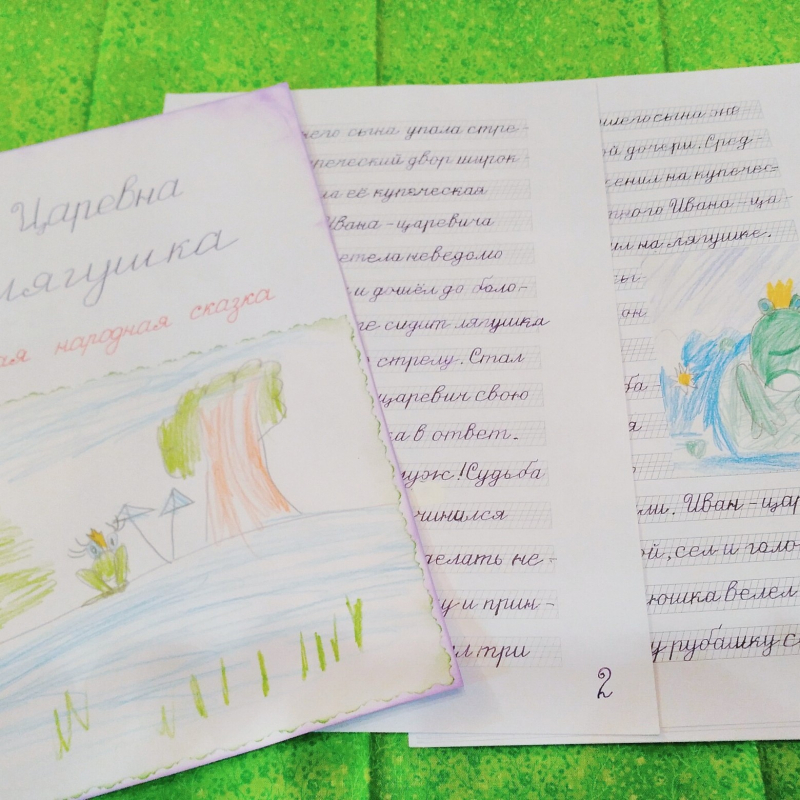 Царевна
лягушка
ая народная сказка
него сына упала стре-
купеческий двор широк
ла её купеческая
Ивана-царевича
етела неведомо
и дошёл до боло-
те сидит лягушка
стрелу. Стал
царевич свою
ка в ответ.
муж! Судьба
чинился
делать не-
у и прин-
л три
2
него сына же-
ой дочери. Сред-
женил на купечес-
тного Ивана-ца-
ил на лягушке.
ы-
он
ба-
я
ли. Иван-цар
ой, сел и голо
юшка велел
у рубашку с